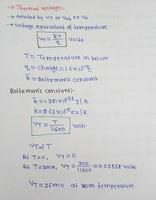 → Thermal voltage:-
→ denoted by VT or Vth or Vt
→ Voltage equivalent of temperature
VT = K̄T/q Volts
T = Temperature in kelvin
q = charge = 1.6×10⁻¹⁹c
K̄ = Boltzmann's constant
Boltzmann's constant:-
K̄ = 1.381×10⁻²³ J/K
K = 8.62×10⁻⁵ eV/K
VT = T/11600 Volts
VT ∝ T
At T=0, VT=0
At T=300K, VT = 300/11600 = 0.0256 Volts
VT = 26mv at room temperature